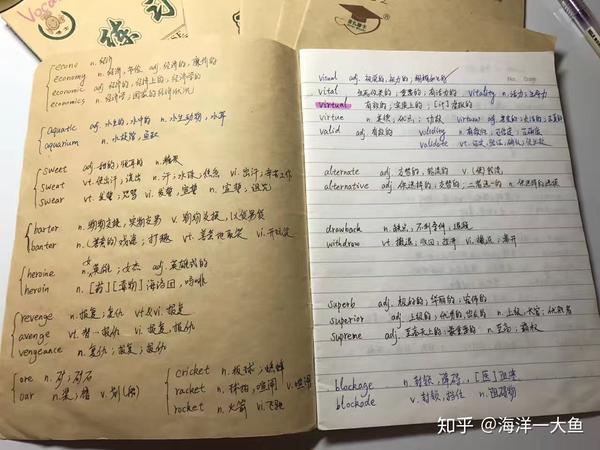 Voca
练习
econo n. 经济
economy n. 经济,节俭 adj. 经济的,廉价的
economic adj. 经济的,经济上的,经济学的
economics n. 经济学;国家的经济状况
aquatic adj. 水生的,水中的 n. 水生动物,水草
aquarium n. 水族馆,鱼缸
sweet adj. 甜的,悦耳的 n. 糖果
sweat vt. 使出汗;流出 n. 汗;水珠;焦急 vi. 出汗;辛苦工作
swear vt. 发誓;咒骂 vi. 发誓,宣誓 n. 宣誓,诅咒
barter n. 物物交换,实物交易 v. 物物交换,以货易货
banter n. (善意的)戏谑;打趣 vt. 善意地取笑 vi. 开玩笑
heroine n. 女英雄;女杰 adj. 英雄式的
heroin n. [药][毒物]海洛因,吗啡
revenge n. 报复;复仇 vt&vi. 报复
avenge vt. 替…报仇 vi. 报复,报仇
vengeance n. 复仇;报复;报仇
ore n. 矿;矿石
oar n. 桨;橹 v. 划(船)
cricket n. 板球;蟋蟀
racket n. 球拍,喧闹 v. 喧闹
rocket n. 火箭 vi. 飞驰
visual adj. 视觉的,视力的;
vital 生死攸关的;重要的;有活力的 vitality n. 活力;生命力
virtual 有效的;实质上的;[计]虚拟的
virtue n. 美德;优点;功效 virtuous adj.
valid adj. 有效的 validity n. 有效性;
validate vt. 证实,验证;确认;使生效
alternate adj. 交替的;轮流的 v. (使)轮流
alternative adj. 供选择的;交替的;二者选一的 n. 供选择的选项
drawback n. 缺点,不利条件;退税
withdraw vt. 撤退;收回;拉开 vi. 撤退;离开
superb adj. 极好的;华丽的;宏伟的
superior adj. 上级的;优秀的,出众的 n. 上级,长官;优胜者
supreme adj. 至高无上的;最重要的 n. 至高;霸权
blockage n. 封锁,障碍,[医]阻塞
blockade v. 封锁;挡住 n. 阻碍物
知乎 @海洋一大鱼